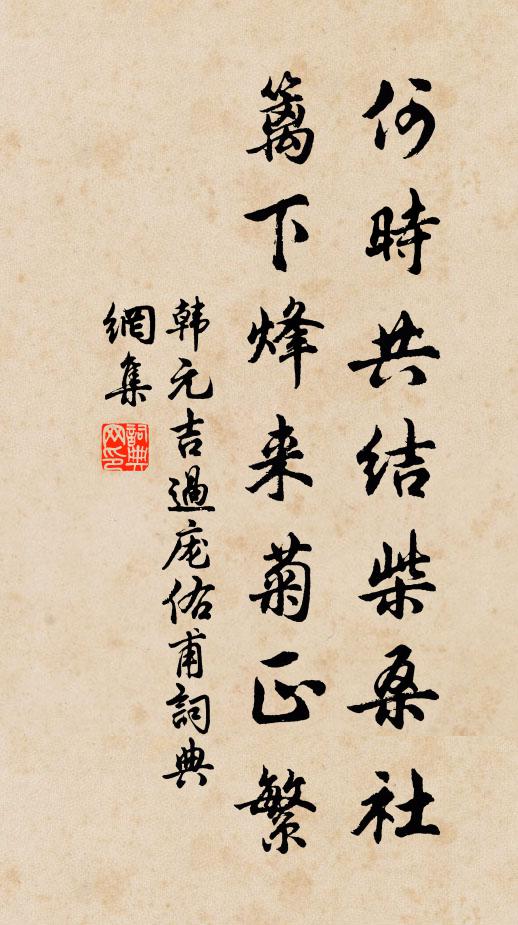 何時共結柴桑社
篱下烽来菊正繁
韩元吉過庞佑甫詞典
網集
詞典网印